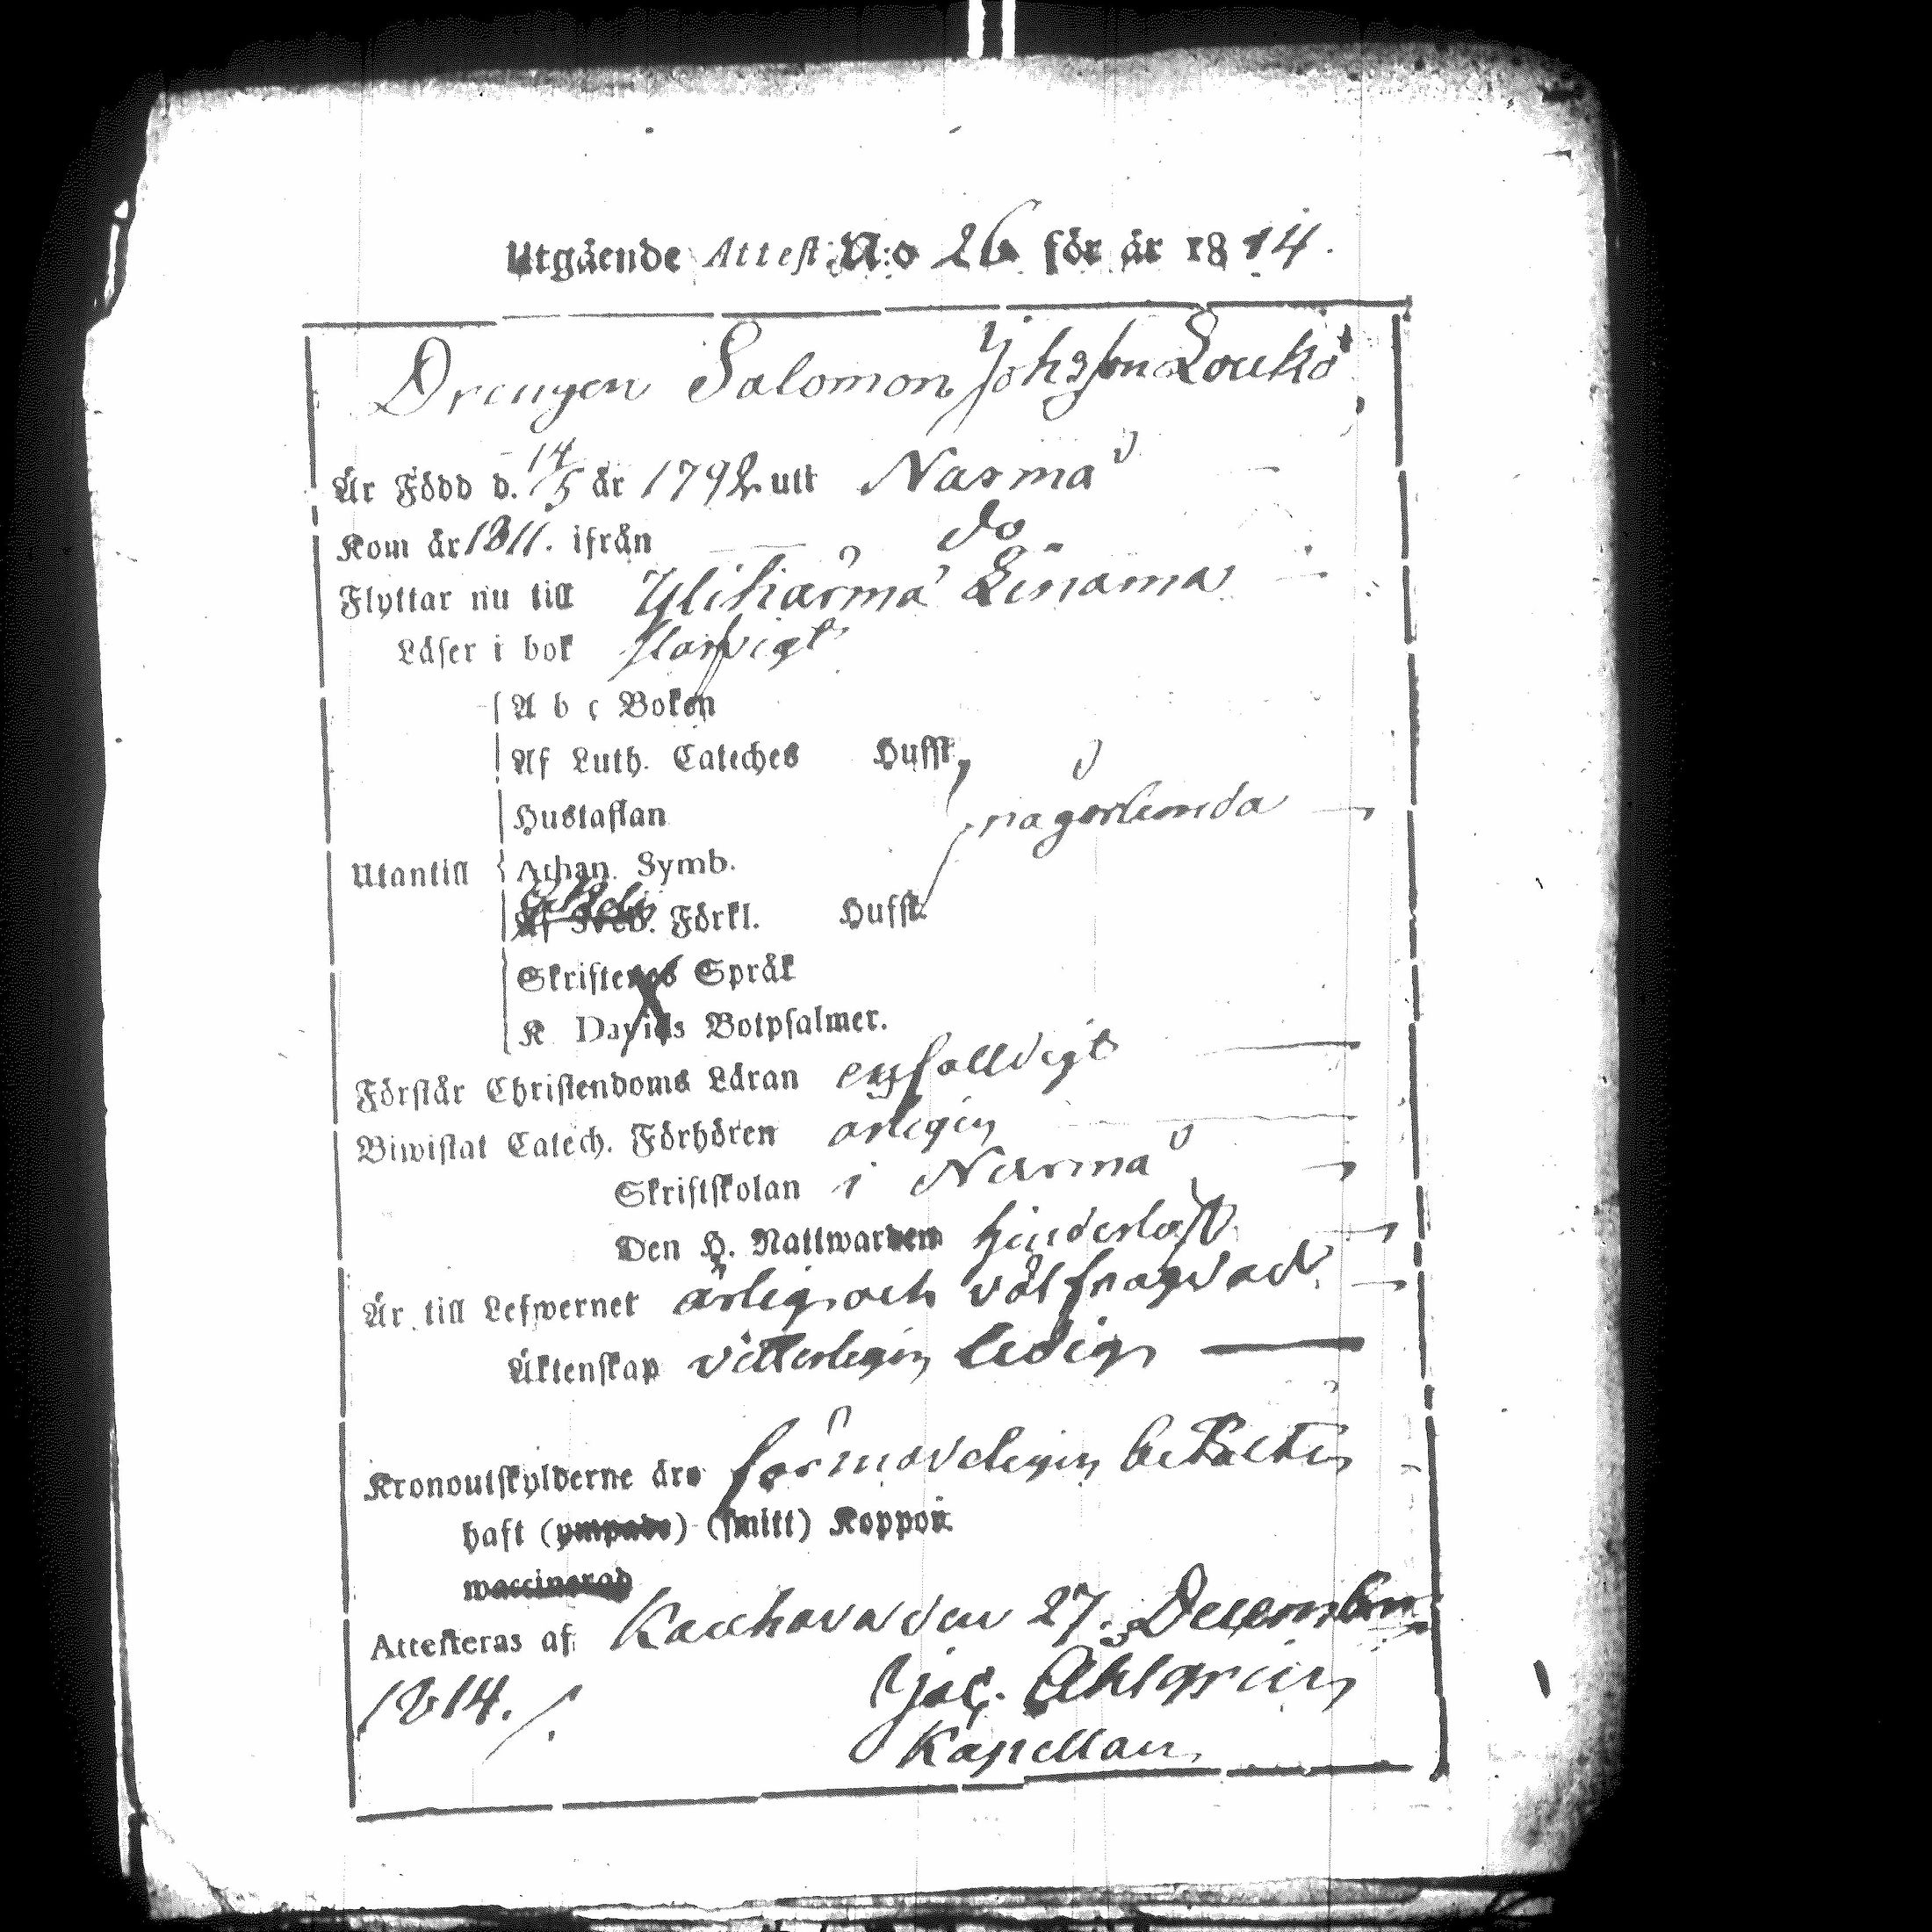 Utgående Attest N:o 26 för år 1814.
Drengen Salomon Johsson Loukö
Är Född d. 14/5 år 1792 utt Närmå
Kom år 1811. ifrån do
Flyttar nu till Ylihärmä Linama
Läser i bok slarfvigt
A b c Boken
Af Luth. Cateches Hufst.
Hustaflan någorlunda
Utantill Athan. Symb.
Förkl. Hufst.
Skriftenes Språk
K Davids Botpsalmer.
Förstår Christendoms Läran enfalldigt
Biwistat Catech. Förhören årligen
Skriftskolan i Närmå
Den H. Nattwarden hinderlöst
Är till Lefwernet ärlig och välfrägdad
Äktenskap vitterligen ledig
Kronoutskylderne äro förmodeligen betalte
haft (ympade) (smitt) Koppor.
waccinerad
Attesteras af Kauhava den 27. December
1814. Jac. Ahlgren
Kapellan